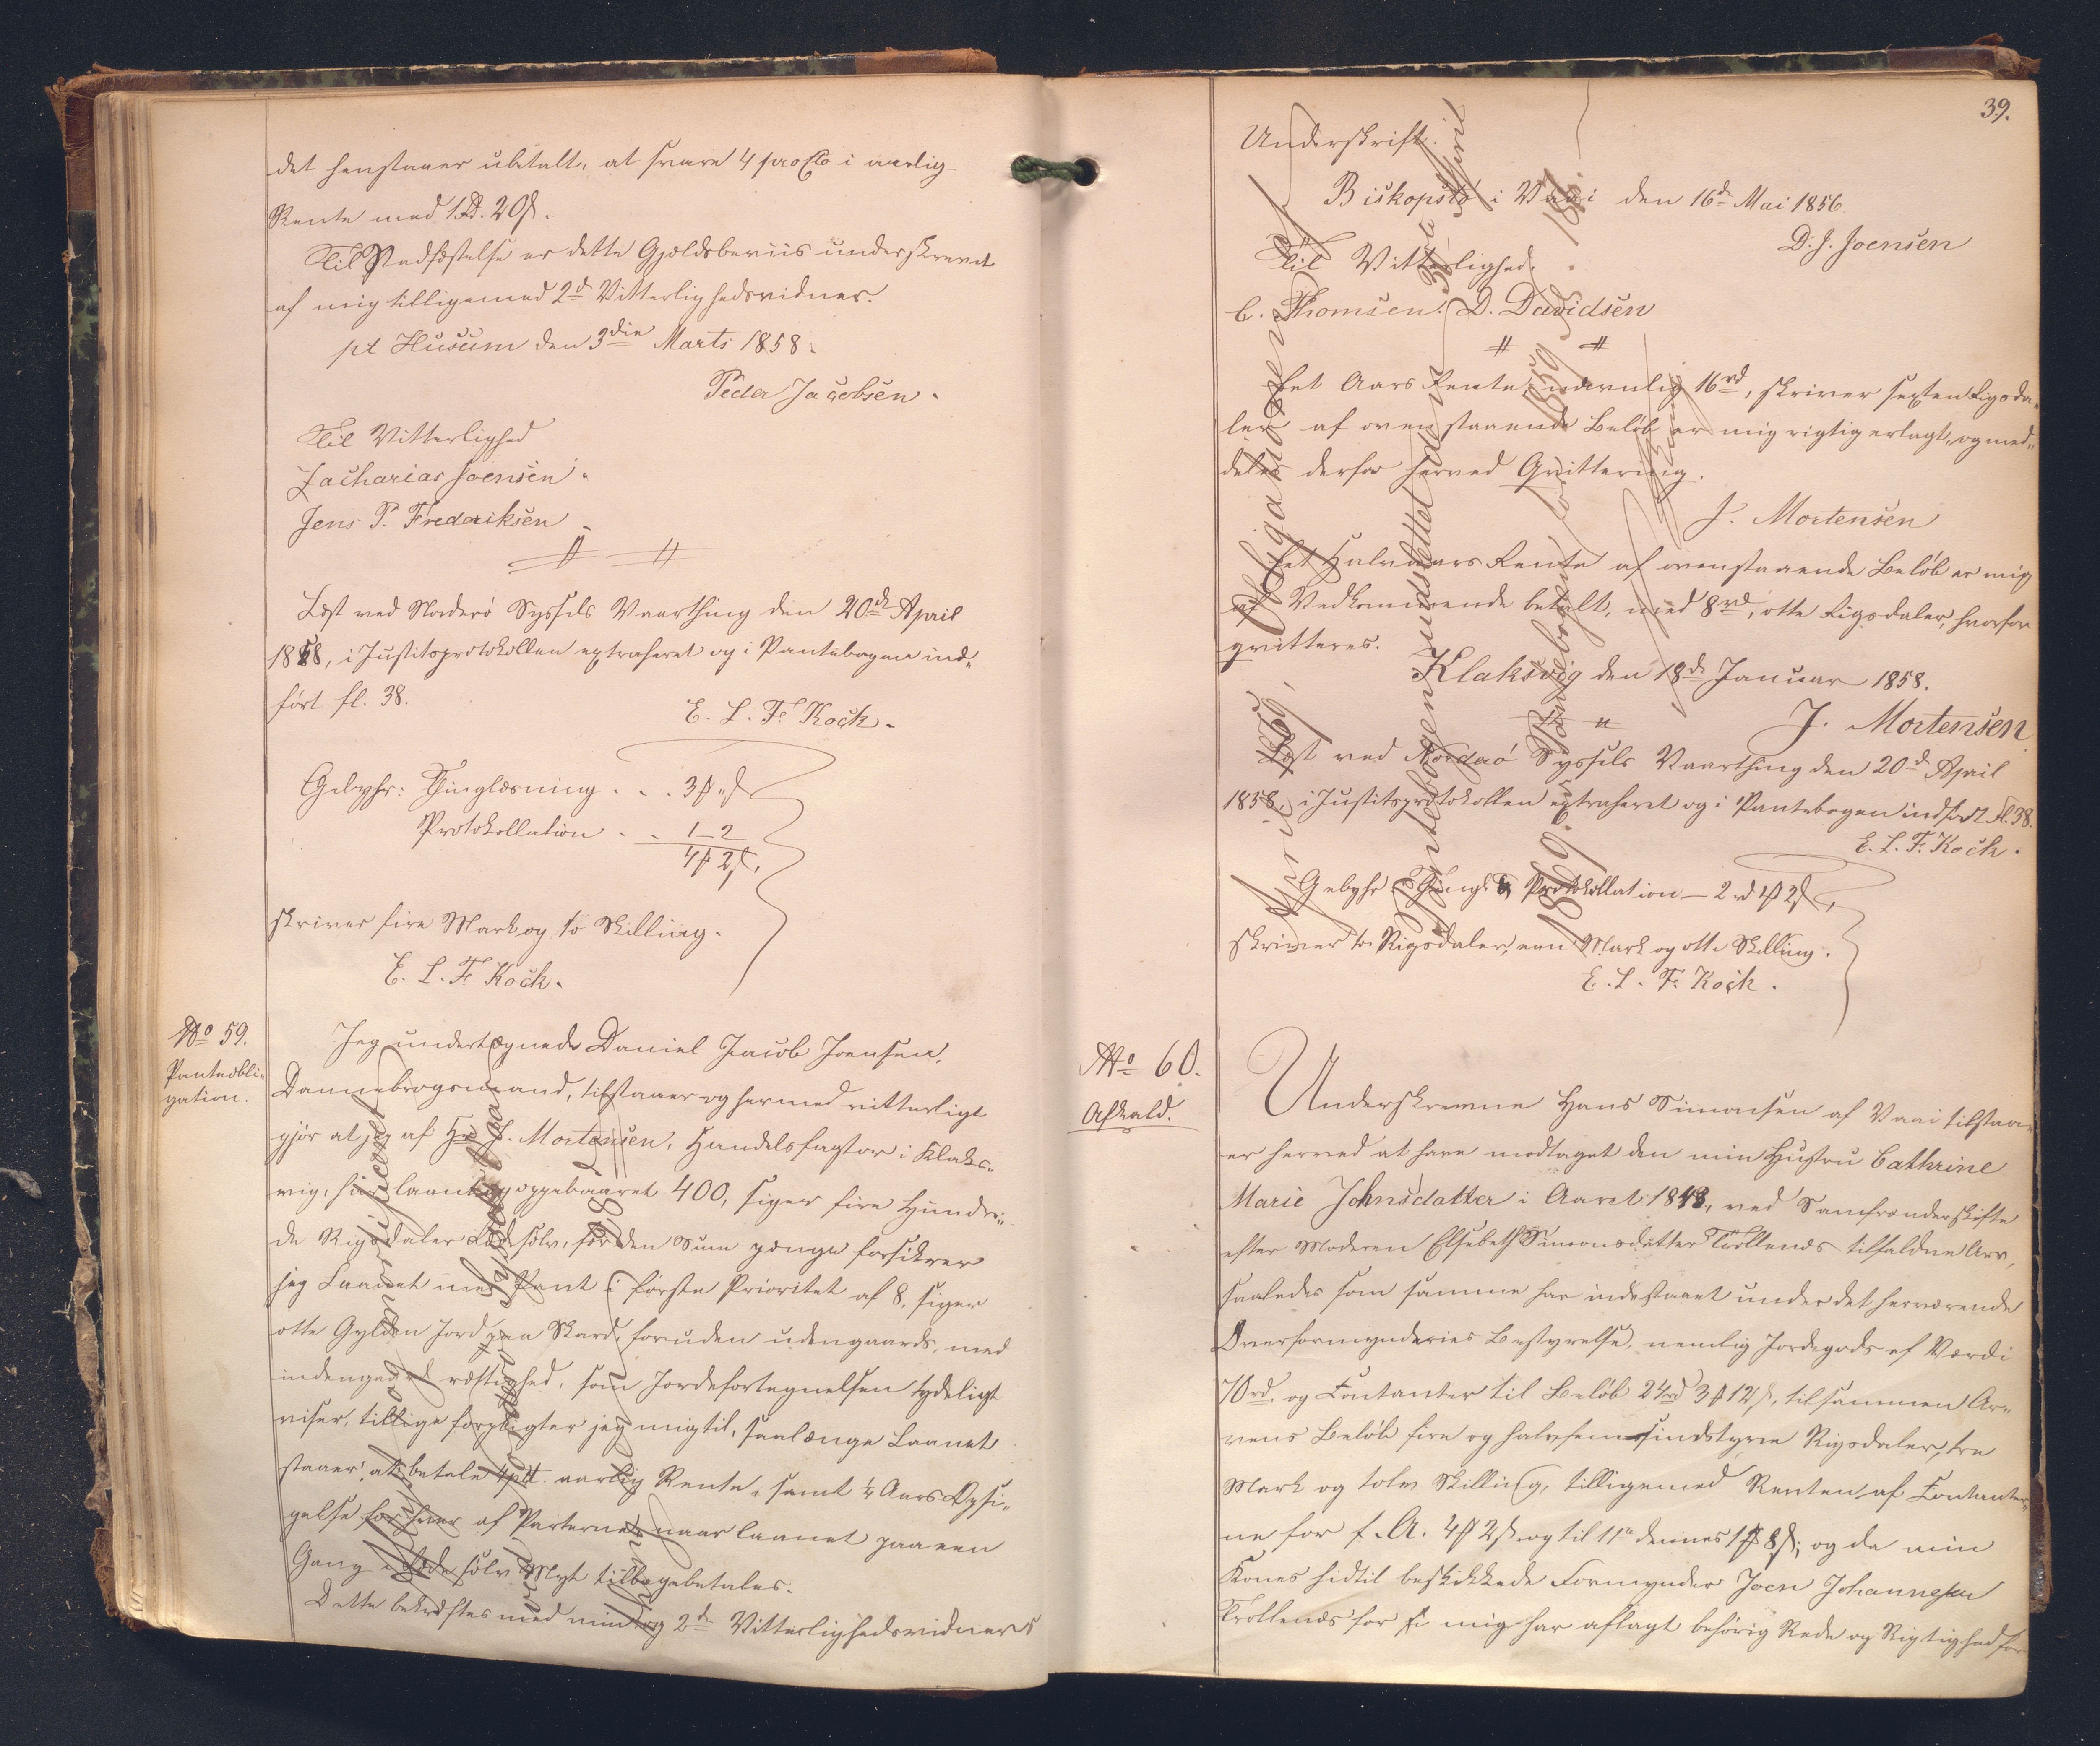 det henstaaer ubetalt, at svare 4 pro Cto i aarlig
Rente med 1 Rd. 20 s.
Til Stadfæstelse er dette Gjældsbeviis underskrevet
af mig tilligemed 2de Vitterlighedsvidner.
pt Husum den 3die Marts 1858.
Peder Jacobsen.
Til Vitterlighed
Zacharias Joensen.
Jens P. Frederiksen
Læst ved Norderø Syssels Vaarthing den 20de April
1858, i Justitsprotokollen extraheret og i Pantebogen ind-
ført fl. 38.
E. L. F. Kock.
Gebyhr: Thinglæsning . . . 3 ß " s
Protokollation . . 1 - 2
4 ß 2 s,
skriver fire Mark og to Skilling.
E. L. F. Kock.
No 59.
Panteobli-
gation.
Jeg undertegnede Daniel Jacob Joensen,
Dannebrogsmand, tilstaaer og hermed vitterligt
gjør at jeg af Hr J. Mortensen, Handelsfaktor i Klaks-
vig, har laant og oppebaaret 400, siger fire Hundre-
de Rigsdaler Sølv, for den Sum penge forsikrer
jeg Laanet med Pant i første Prioritet af 8, siger
otte Gylden Jord paa Skard, foruden udengaards, med
indengaards som Jordefortegnelsen tydeligt
viser, tillige forpligter jeg mig til, saalænge Laanet
staaer, at betale 4 pCt. aarlig Rente, samt ½ Aars Opsi-
gelse for hver af Parterne, naar laanet paa een
Gang i sølv Mynt tilbagebetales.
Dette bekræftes med min og 2de Vitterlighedsvidners
39.
Underskrift.
Biskopstö i Vaai den 16de Mai 1856
D. J. Joensen
Til Vitterlighed.
C. Thomsen. D. Davidsen
Eet Aars Rente, nævnlig 16 rd, skriver sexten Rigsda-
ler af ovenstaaende Beløb er mig rigtig erlagt, og med-
deles derfor herved Qvittering.
J. Mortensen
Eet Halvaars Rente af ovenstaaende Beløb er mig
af Vedkommende betalt, med 8 rd, otte Rigsdaler, hvorfor
qvitteres.
Klaksvig den 18de Januar 1858.
J. Mortensen
Læst ved Norderö Syssels Vaarthing den 20de April
1858, i Justitsprotokollen extraheret og i Pantebogen indført Fl. 38.
E. L. F. Kock.
Gebyhr Thingl. & Protokollation — 2 rd 1 ß 2 s,
skriver to Rigsdaler, een Mark og otte Skilling.
E. L. F. Kock.
Pantebogen udslettet den 30te April
1869.
No 60.
Afkald.
Underskrevne Hans Simonsen af Vaai tilstaa-
er herved at have modtaget den min Hustru Cathrine
Marie Johnsdatter i Aaret 1848, ved Samfrænderskifte
efter Moderen Elsebeth Simonsdatter Tröllenæs tilfaldne Arv,
saaledes som samme har indestaaet under det herværende
Overformynderies Bestyrelse, nemlig Jordegods af Værdi
70 rd. og Contanter til Beløb 24 rd 3 ß 12 s, tilsammen Ar-
vens Beløb fire og halvfemsindstyve Rigsdaler, tre
Mark og tolv Skilling, tilligemed Renten af Contanter-
ne for f. A. 4 ß 2 s og til 11te dennes 1 ß 8 s; og da min
Kones hidtil beskikkede Formynder Joen Johannesen
Trollenæs for mig har aflagt behörig Rede og Rigtighed for